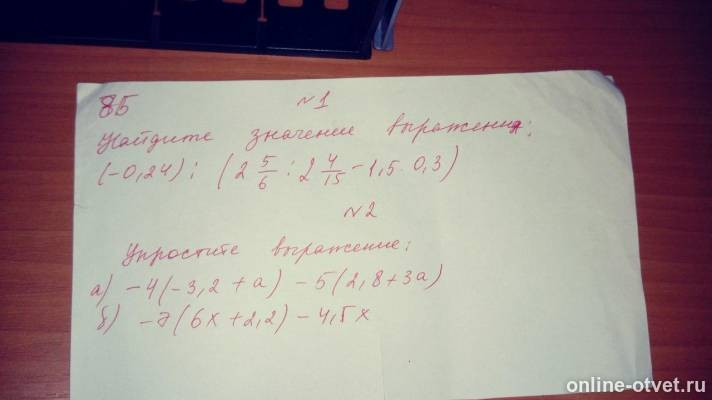 8Б
№1
Найдите значение выражения:
(-0,24) : (2 5/6 : 2 4/15 - 1,5 · 0,3)
№2
Упростите выражение:
а) -4(-3,2 + а) - 5(2,8 + 3а)
б) -7(6х + 2,2) - 4,5х
online-otvet.ru